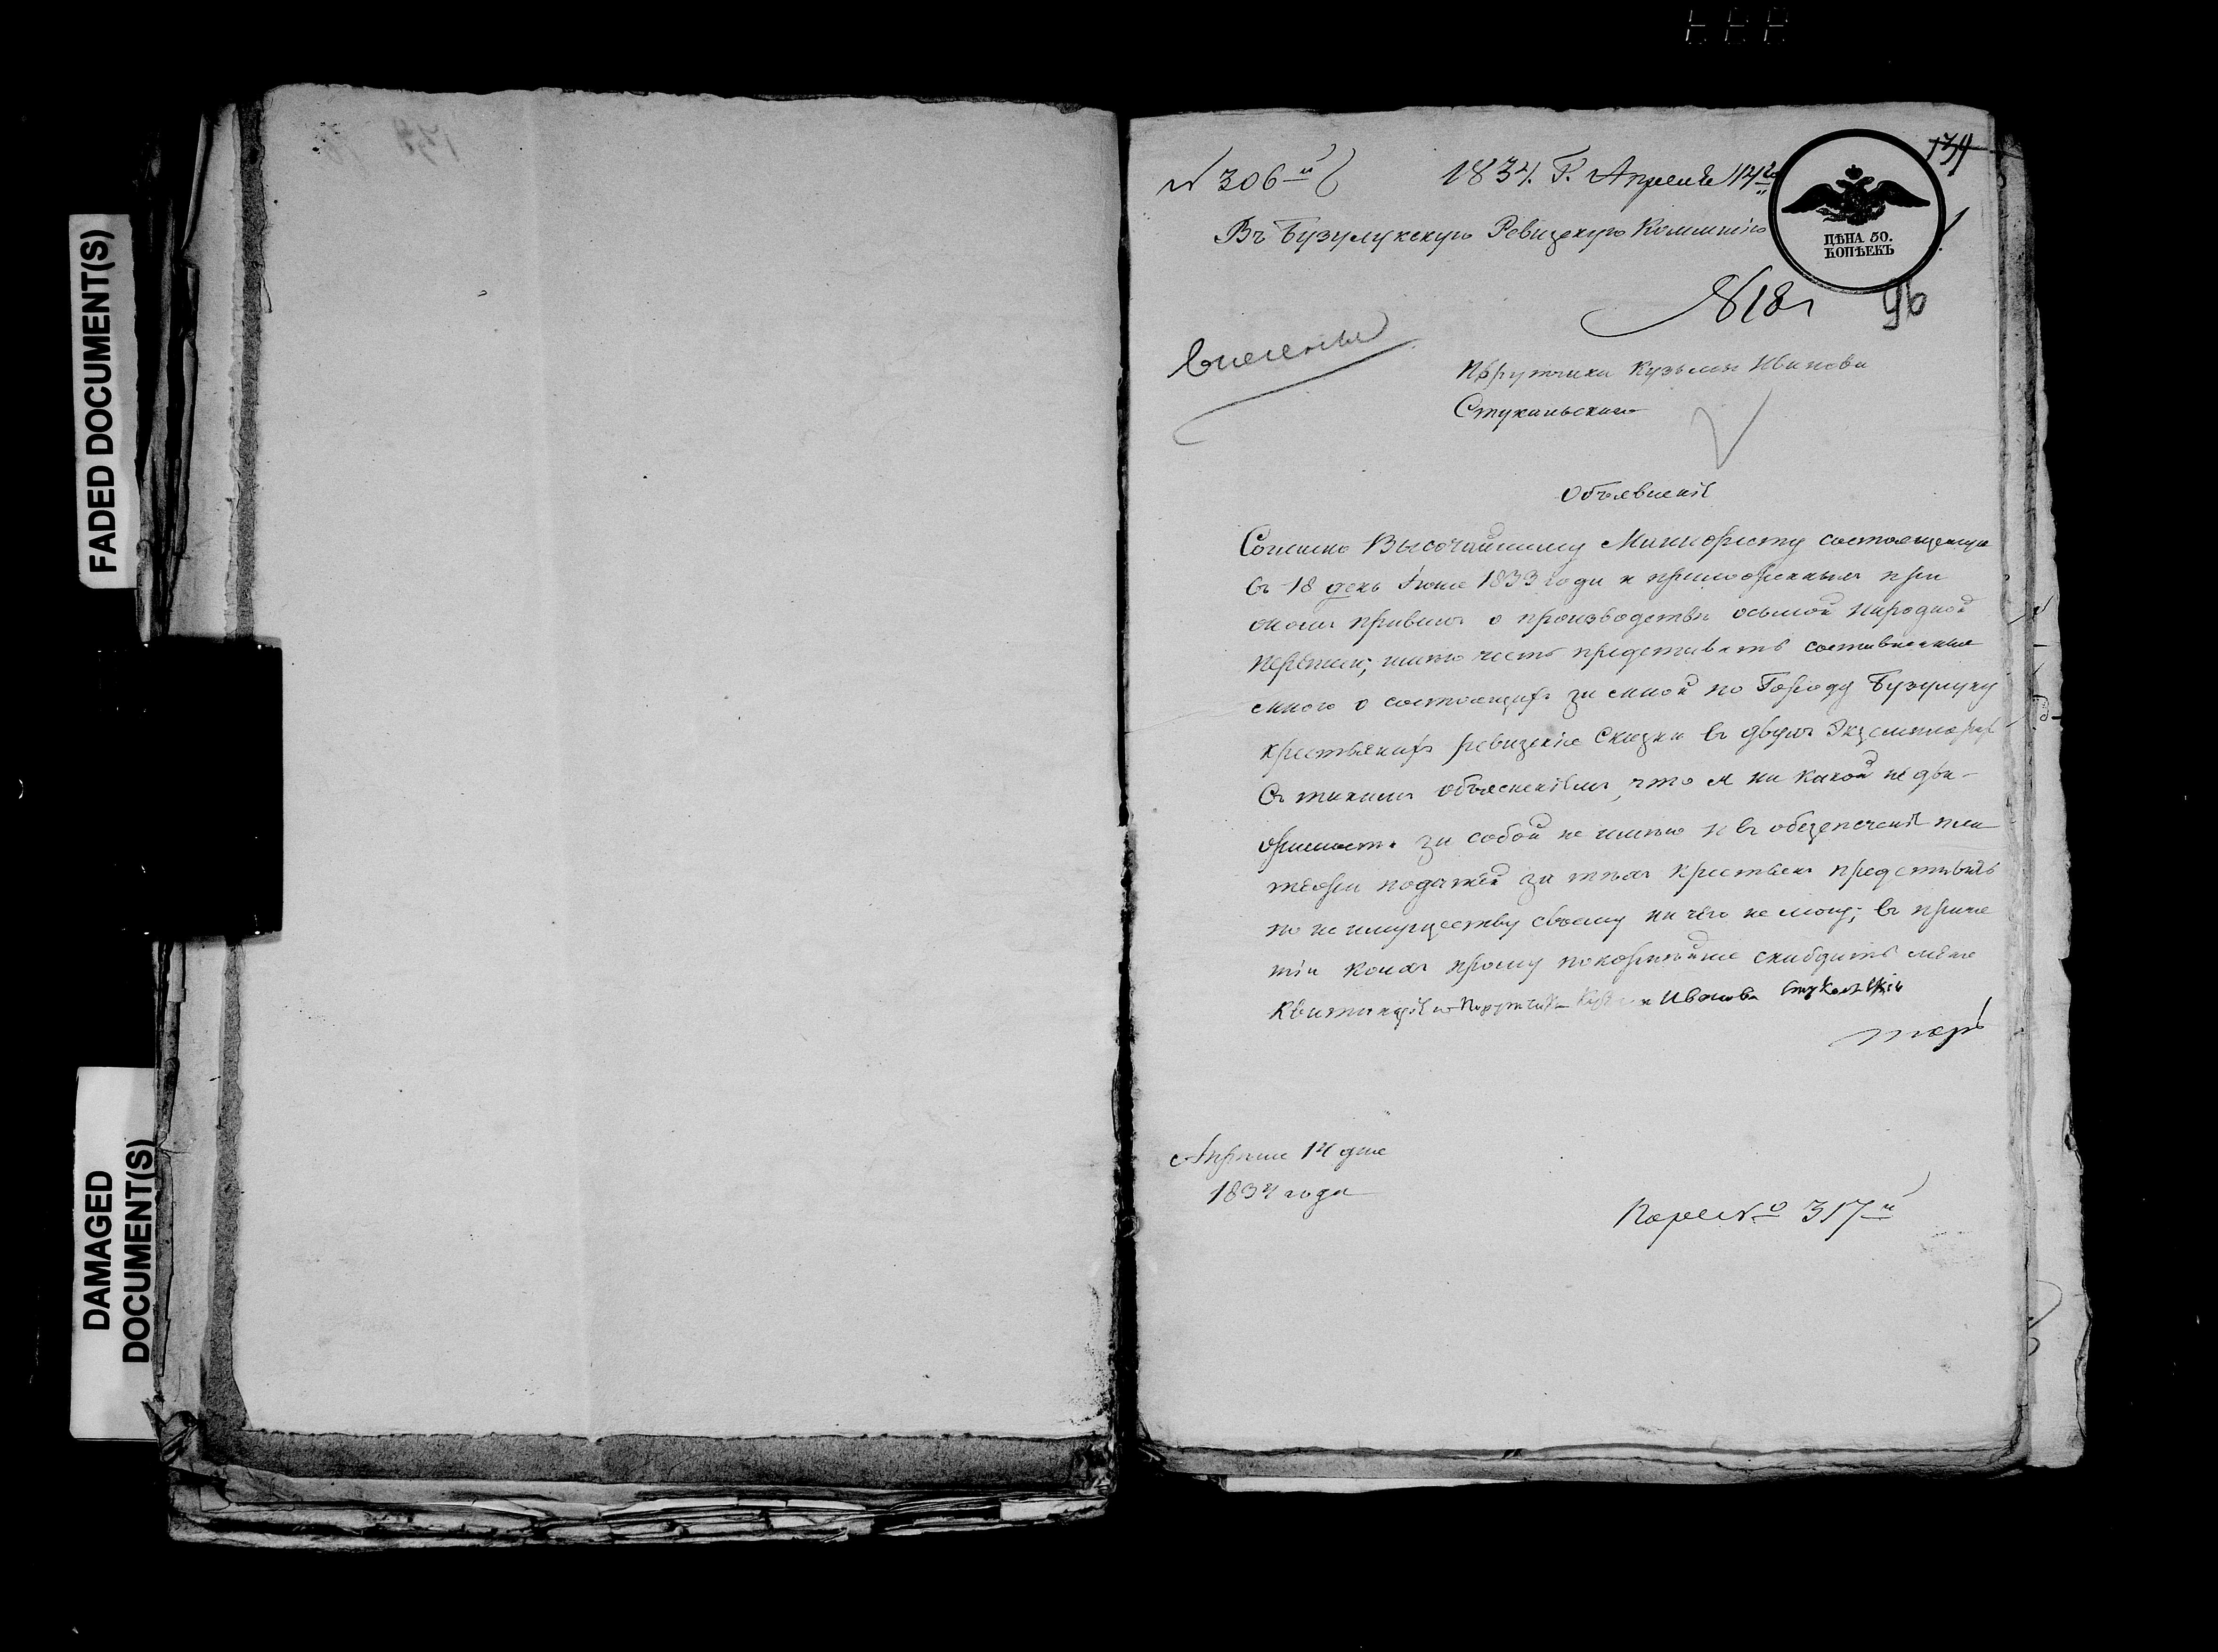 FADED DOCUMENT(S)
DAMAGED
DOCUMENT(S)
№ 306й
1834. Г. Апреля 14го
139
Въ Бузулукскую Ревизскую Коммисію
ЦѢНА 50.
КОПѢЕКЪ
№ 18
96
Порутчика Кузьмы Иванова
Стукальскаго
Объевленіе
Согласно Высочайшему Манифесту состоящемуся
въ 18 день Іюня 1833 года и приложеннымъ при
ономъ правилъ о производствѣ осьмой народной
переписи, имѣю честь представить составленные
мною о состоящихъ за мной по Городу Бузулуку
крестьянахъ ревизскіе Сказки въ двухъ Экземплярахъ
Съ такимъ объясненіемъ, что я ни какой не дви-
жимости за собой не имѣю и въ обезпеченіе пла
тежа податей за тѣхъ крестьянъ представить
по не имуществу своему ни чего не могу; въ приня
тіи коихъ прошу покорнѣйше снабдить меня
Квитанціею Порутчикъ Кузьма Ивановъ
Апреля 14 дня
1834 года
№ 317й